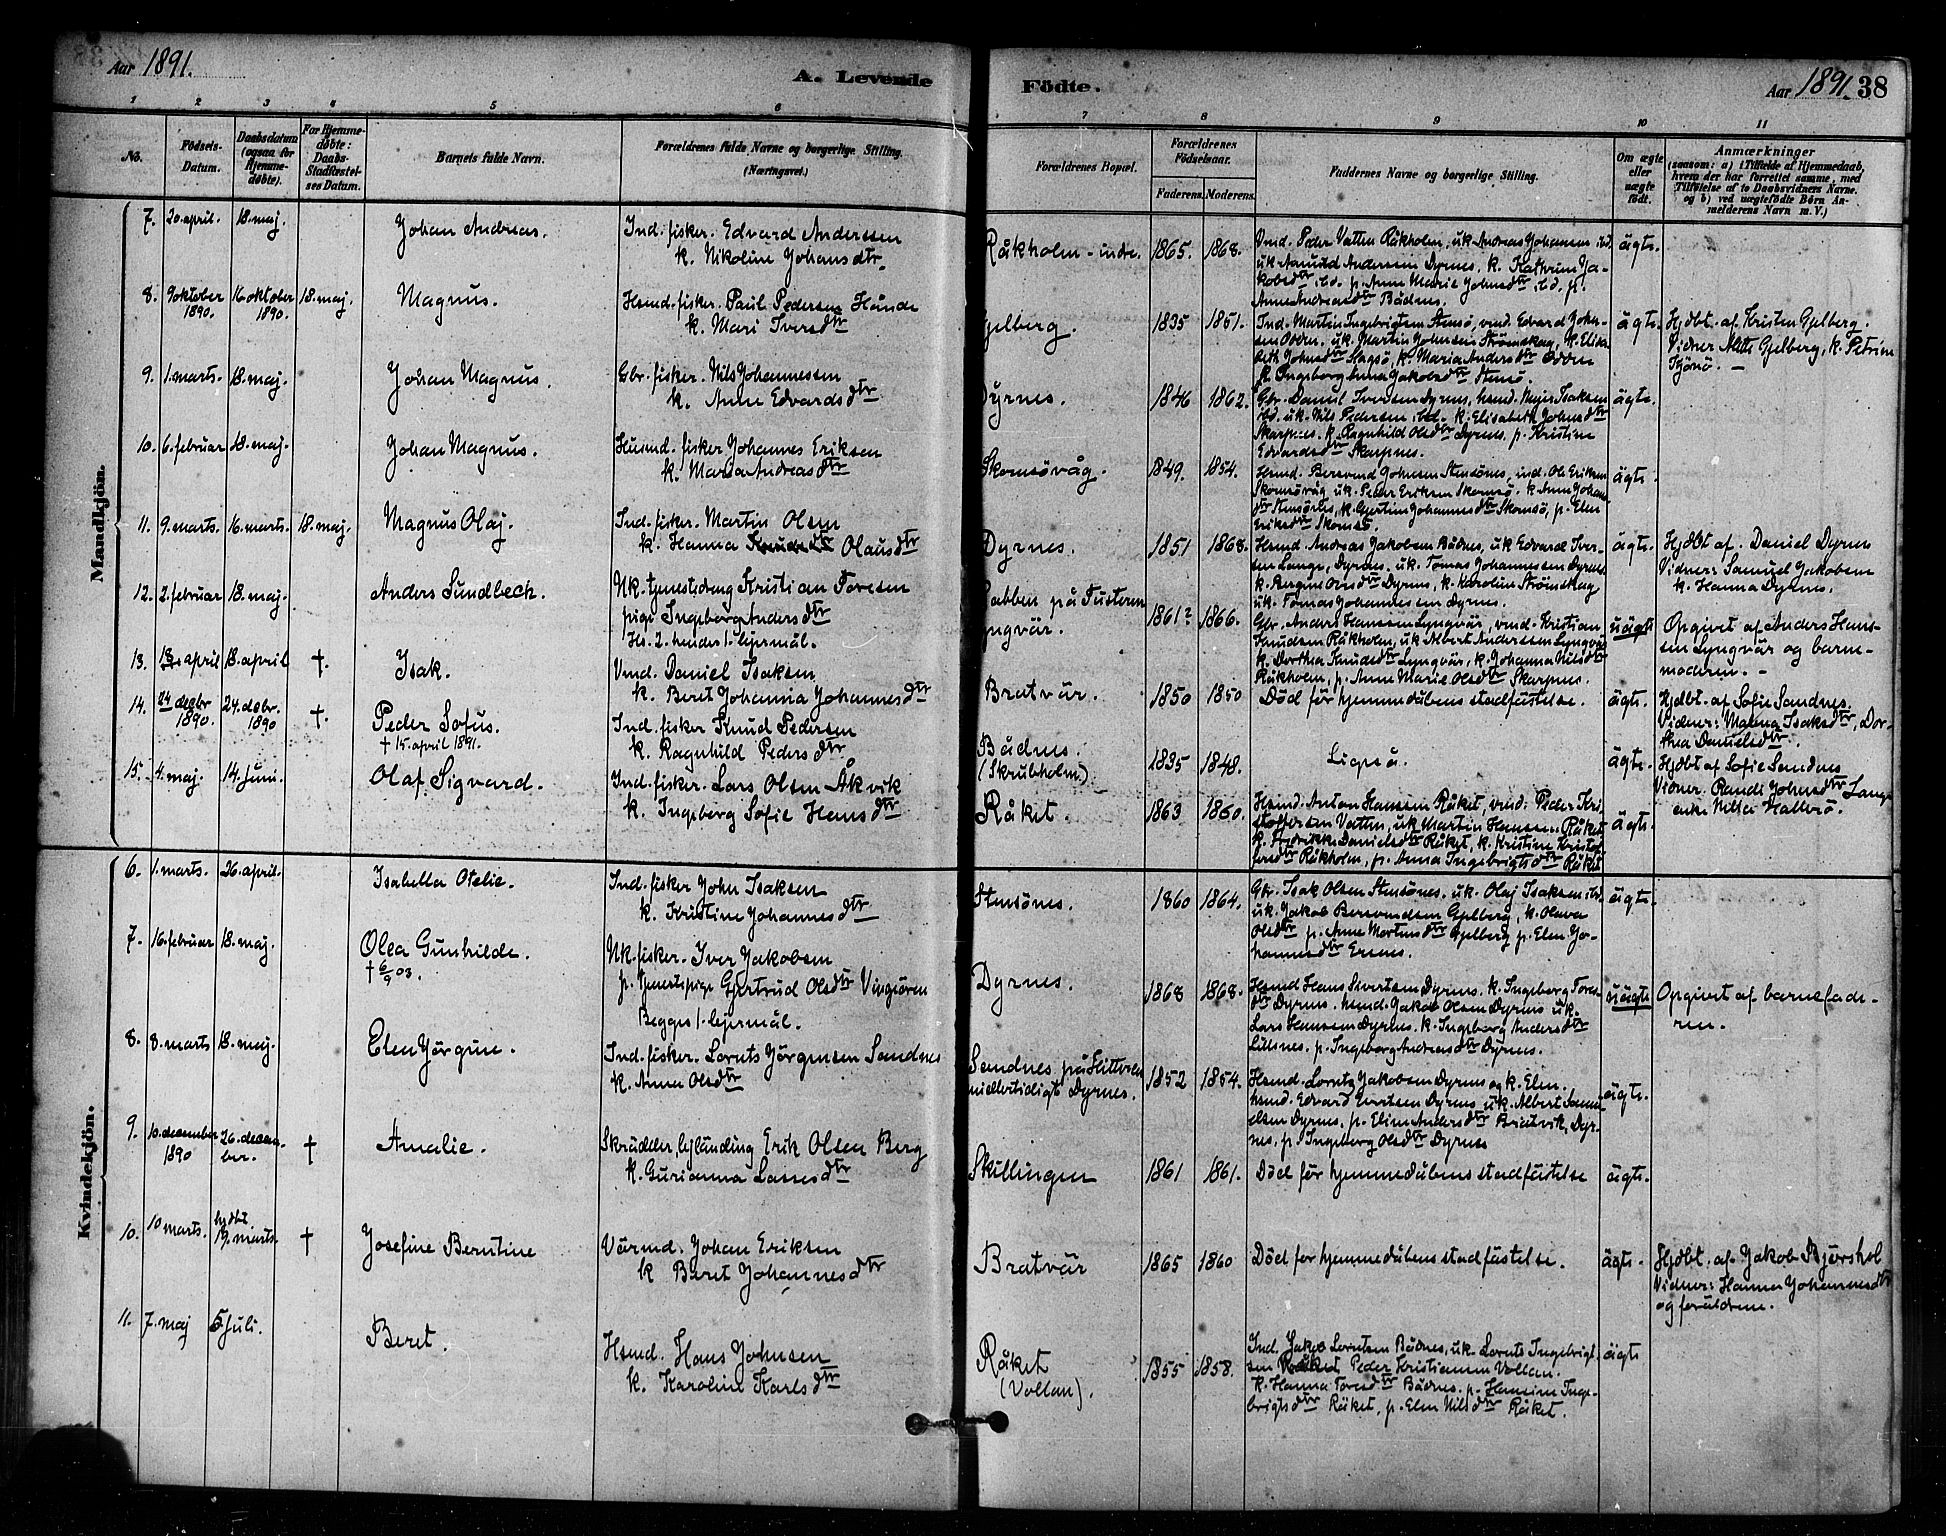 Aar 1891.
A. Levende
Födte.
Aar 1891. 38
1 2 3 4 5 6
7 8 9 10 11
No.
Födsels-
Datum.
Daabsdatum
(ogsaa for
Hjemme-
döbte).
For Hjemme-
döbte:
Daabs-
Stadfæstel-
ses Datum.
Barnets fulde Navn.
Forældrenes fulde Navne og borgerlige Stilling.
(Næringsvei.)
Forældrenes Bopæl.
Forældrenes
Födselsaar.
Faderens. Moderens.
Faddernes Navne og borgerlige Stilling.
Om ægte
eller
uægte
födt.
Anmærkninger
(saasom: a) i Tilfælde af Hjemmedaab,
hvem der har forrettet samme, med
Tilföielse af to Daabsvidners Navne.
og b) ved uægtefödte Börn An-
melderens Navn m. V.)
Mandkjön.
7. 20. april. 18. maj. Johan Andreas. Ind. fisker. Edvard Anderssen
k. Nikoline Johansdtr.
Råkholm - indre. 1865. 1868. ägte.
Vmd. Peder Vatten Råkholm, uk Andreas Johansen ibd.
uk. Amund Andersen Dyrnes. k. Kathrine Ja-
kobsdtr ibd. p. Anne Marie Johnsdtr ibd. p.
Anne Andreasdtr Bådnes.
8. 9 oktober 1890. 16. oktober 1890. 18. maj. Magnus. Hsmd. fisker. Paul Pedersen Hunde
k. Mari Iversdtr
Gjelberg. 1835 1851. ägte.
Ind. Martin Ingebrigtsen Stensö, vmd. Edvard Joher-
sen Odden. uk. Martin Johnsen Strömskag, k. Elisa-
beth Johnsdtr Skarsö, k. Maria Andersdtr Odden
k. Ingeborg Anna Jakobsdtr Stensö.
Hjdbt. af Kristen Gjelberg.
Vidner Mette Gjelberg, k. Petrine
Tjönö. —
9. 1. marts. 18. maj. Johan Magnus. Gbr. fisker. Nils Johannessen
k. Anne Edvardsdtr
Dyrnes. 1846 1862. ägte.
Gbr. Daniel Iversen Dyrnes, hsmd. Mejer Isaksen
ibd. uk. Nils Pedersen ibd. k. Elisabeth Johnsdtr
Skarpnes. k. Ragnhild Olsdtr Dyrnes, p. Kristine
Edvardsdtr Skarpnes.
10. 6. februar 18. maj. Johan Magnus. Husmd. fisker Johannes Eriksen
k. Marta Andreasdtr
Skomsövåg. 1849. 1854. ägte.
Hsmd. Bersvend Johnsen Stensönes, ind. Ole Eriksen
Skomsövåg uk. Peder Eriksen Skomsö. k. Anne Johan-
dtr Stensönes, k. Gjertine Johannesdtr Skomsö, p. Elen
Eriksdtr Skomsö.
11. 9. marts. 16. marts. 18. maj. Magnus Olaj. Ind. fisker. Martin Olsen
k. Hanna Olausdtr
Dyrnes. 1851 1868. ägte.
Hsmd. Andreas Jakobsen Bådnes, uk Edvard Iver-
sen Lange, Dyrnes. uk. Tomas Johannessen Dyrnes
k. Bergine Olesdtr Dyrnes, k. Karoline Strömskag
uk. Tomas Johannessen Dyrnes.
Hjdbt af. Daniel Dyrnes
Vidner: Samuel Jakobsen
k. Hanna Dyrnes.
12. 2. februar 18. maj. Anders Sundbech. Uk. tjenestedreng Kristian Toresen
pige Ingeborg Andersdtr
Hs. 2. hendes 1. lejermål.
Gabben på Tusteren
Lyngvär. 1861? 1866. uägte
Gbr. Anders Hanssen Lyngvär, vmd. Kristian
Knudsen Råkholm, uk Albert Anderssen Lyngvär
k. Dorthea Knudsdtr Lyngvär, k. Johanna Nilsdtr
Råkholm, p. Anne Marie Olsdtr Skarpnes.
Opgivet af Anders Hans-
sen Lyngvär og barne-
moderen. -
13. 13. april 18. april † Isak. Vmd. Daniel Isaksen
k. Beret Johanna Johannesdtr
Bratvär. 1850 1850 Död för hjemmedåbens stadfästelse. ägte.
Hjdbt. af Sofie Sandnes.
Vidner: Malena Isaksdtr, Dor-
thea Danielsdtr.
14. 24 decbr 1890. 24. debr. 1890 †. Peder Sofus.
† 15. april 1891.
Ind. fisker Knud Pedersen
k. Ragnhild Pedersdtr
Bådnes.
(Skrubholm.) 1835 1848. Ligeså ägte.
Hjdbt af Sofie Sandnes
Vidner. Randi Johnsdtr Lange
enke Nilsa Hallerö.
15. 4. maj. 14. juni. Olaf Sigvard. Ind. fisker. Lars Olsen Åkvik
k. Ingeborg Sofie Hansdtr
Råket. 1863 1860. ägte.
Hsmd. Anton Hanssen Råket, vmd. Peder Kri-
stoffersen Vatten, uk Martin Hanssen Råket
k. Fredrikke Danielsdtr Råket, k. Kristine Kristof-
fersdtr Råkholm, p. Anna Ingebrigtsdtr Råket
Kvindekjön.
6. 1. marts. 26. april. Isabella Otelie. Ind. fisker John Isaksen
k. Kristine Johannesdtr
Stensönes. 1860 1864. ägte.
Gbr. Isak Olsen Stensönes. uk. Olaj Isaksen ibd.
uk. Jakob Bersvendsen Gjelberg, k. Olava
Olsdtr p. Anne Martinsdtr Gjelberg p. Elen Jo-
hannesdtr Ernes.
7. 16. februar 18. maj. Olea Gunhilde.
† 6/9 03.
Uk. fisker. Iver Jakobsen
p. Tjenestepige Gjertrud Olsdtr Vingsören
Begges 1. lejermål.
Dyrnes. 1868 1868. uägte
Hsmd Hans Sivertsen Dyrnes. k. Ingeborg Tores-
dtr Dyrnes. hsmd. Jakob Olsen Dyrnes uk.
Lars Hanssen Dyrnes. k. Ingeborg Andersdtr
Lillenes. p. Ingeborg Andreasdtr Dyrnes.
Opgivet af barnefade-
ren.
8. 8. marts 18. maj. Elen Jörgine. Ind. fisker. Lornts Jörgensen Sandnes
k. Anna Olsdtr
Sandnes på Hitteren
midlertidigt Dyrnes. 1852 1854. ägte.
Hsmd. Lorntz Jakobsen Dyrnes og k. Elen.
hsmd. Edvard Evertsen Dyrnes, uk. Albert Samu-
elsen Dyrnes, p. Eline Andersdtr Bratvik, Dyr-
nes, p. Ingeborg Olsdtr Dyrnes
9. 10. december 1890 26. decem-
ber. † Amalie. Skrädder, lejländing Erik Olsen Berg
k. Gurianna Larsesdtr
Skillingen 1861 1861. Död för hjemmedåbens stadfästelse ägte.
10. 10 marts. hjdbt
19. marts. † Josefine Berntine Värmd. Johan Eriksen
k Beret Johannesdtr
Bratvär 1865 1860 Död for hjemmedåbens stadfästelse. ägte.
Hjdbt. af. Jakob Bjørshol
Vidner: Hanna Johannesdtr
og foräldrene.
11. 7. maj 5 juli. Beret. Hsmd. Hans Johnsen
k. Karoline Karlsdtr
Råket
(Vollan). 1855 1858. ägte
Ind. Jakob Lorntsen Bådnes, uk. Lornts Ingebrigt-
sen Råket Peder Kristiansen Vollan.
k. Hanna Toresdtr Bådnes. p. Hansine Inge-
brigtsdtr Råket, p. Elen Nilsdtr Råket.